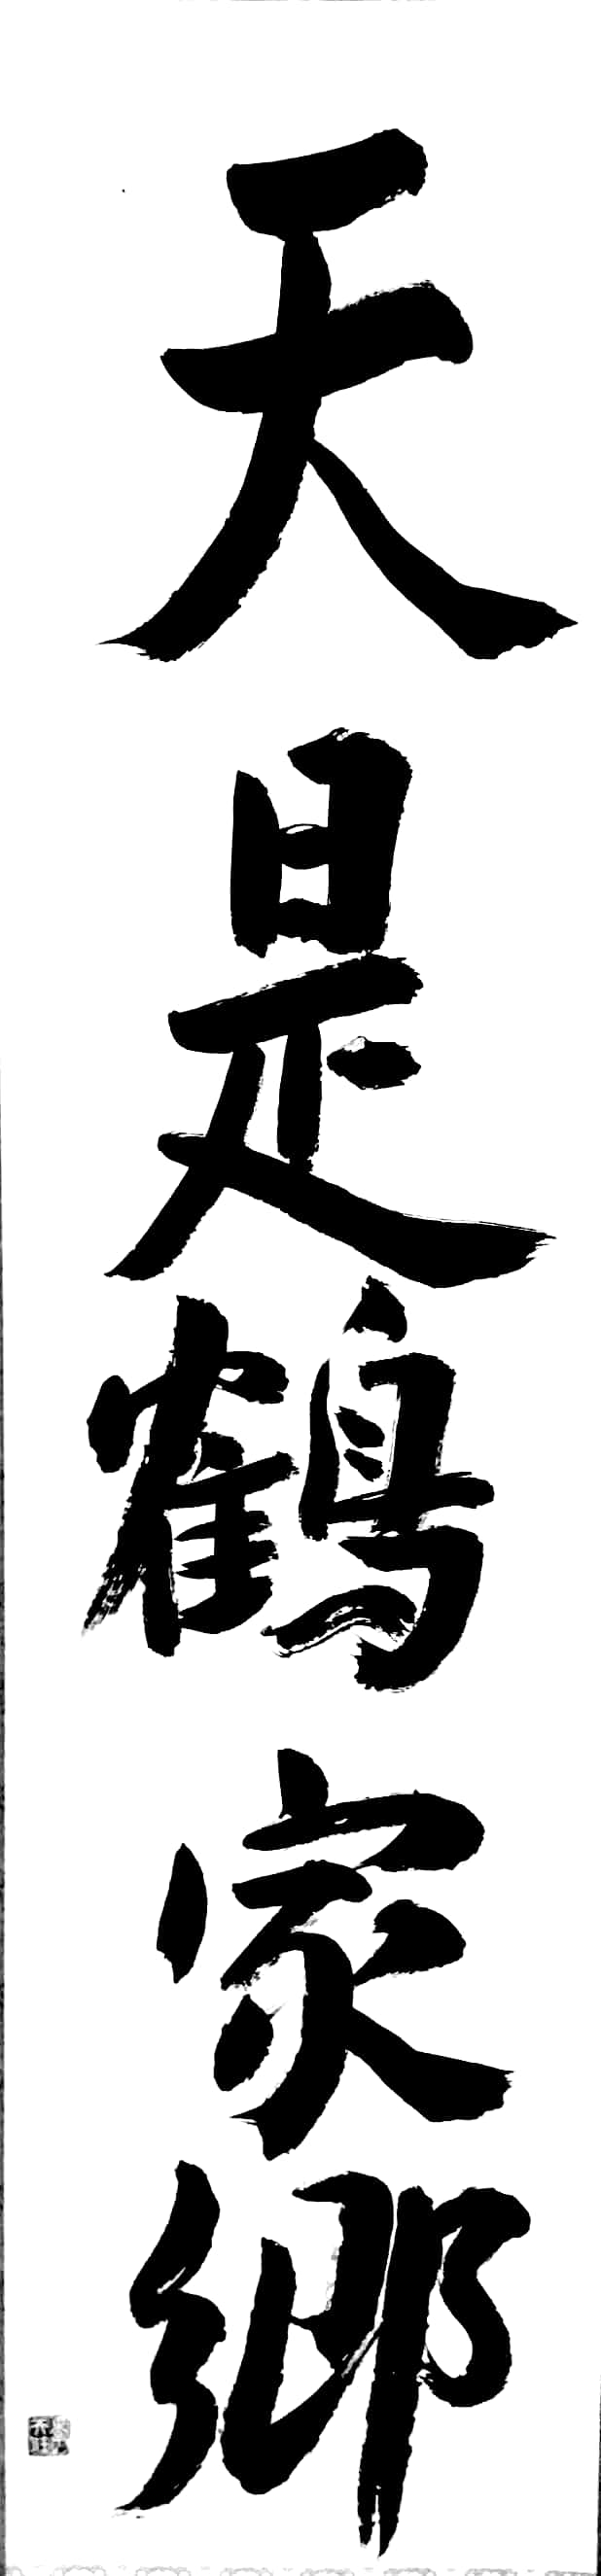 天是鶴家郷